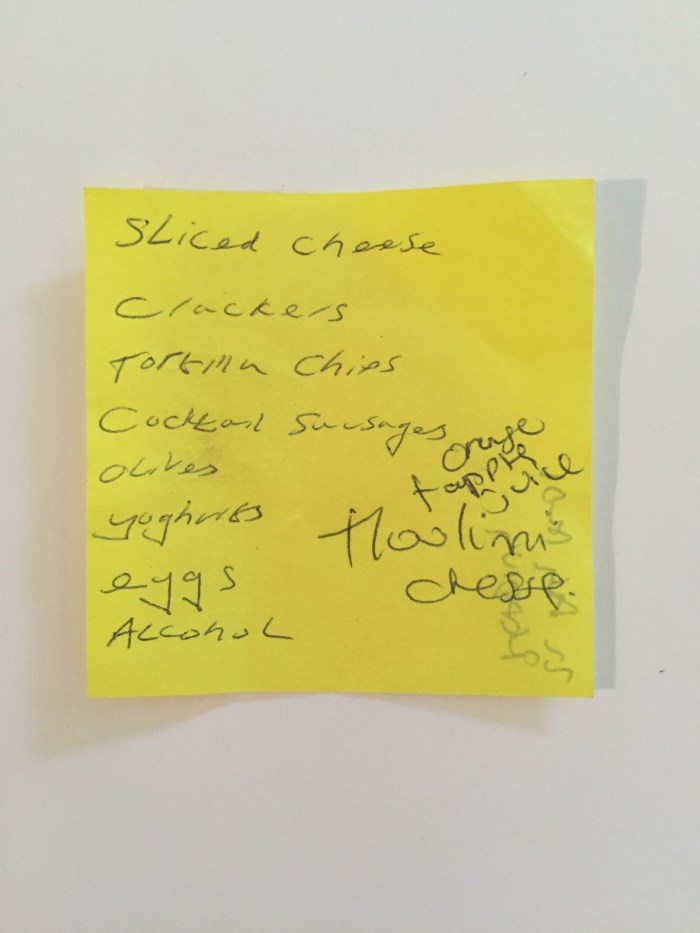 Sliced cheese
Crackers
Tortilla Chips
Cocktail Sausages
Olives
yoghurts
eggs
Alcohol
orange
+ apple
juice
Haolimi
cheese.